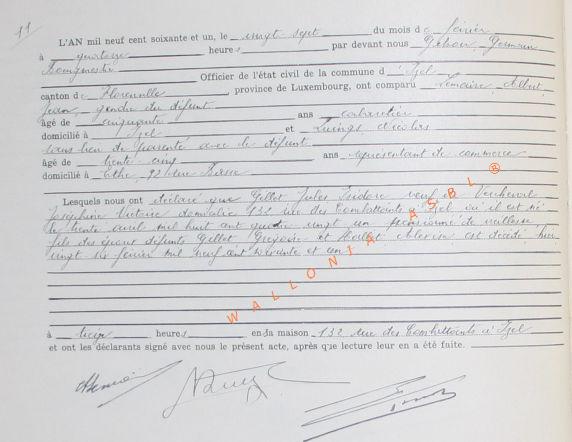 11
L'AN mil neuf cent soixante et un, le vingt sept du mois de février
à quatorze heures par devant nous
Bourgmestre Officier de l'état civil de la commune d' Izel
canton de Florenville, province de Luxembourg, ont comparu Lemaire Albert
Jean, gendre du défunt
âgé de cinquante ans
domicilié à Izel et
sans lien de parenté avec le défunt
âgé de trente cinq ans représentant de commerce
domicilié à Ethe, 92
Lesquels nous ont déclaré que Gillet Jules Isidore veuf de
Joséphine Victoire domicilié 132 rue des Combattants à Izel où il est né
le trente avril mil huit cent quatre vingt un pensionné de vieillesse
fils des époux défunts Gillet Grégoire et est décédé hier
vingt six février mil neuf cent soixante et un
à treize heures en sa maison 132 rue des Combattants à Izel
et ont les déclarants signé avec nous le présent acte, après que lecture leur en a été faite.
WALLONIA ASBL ®